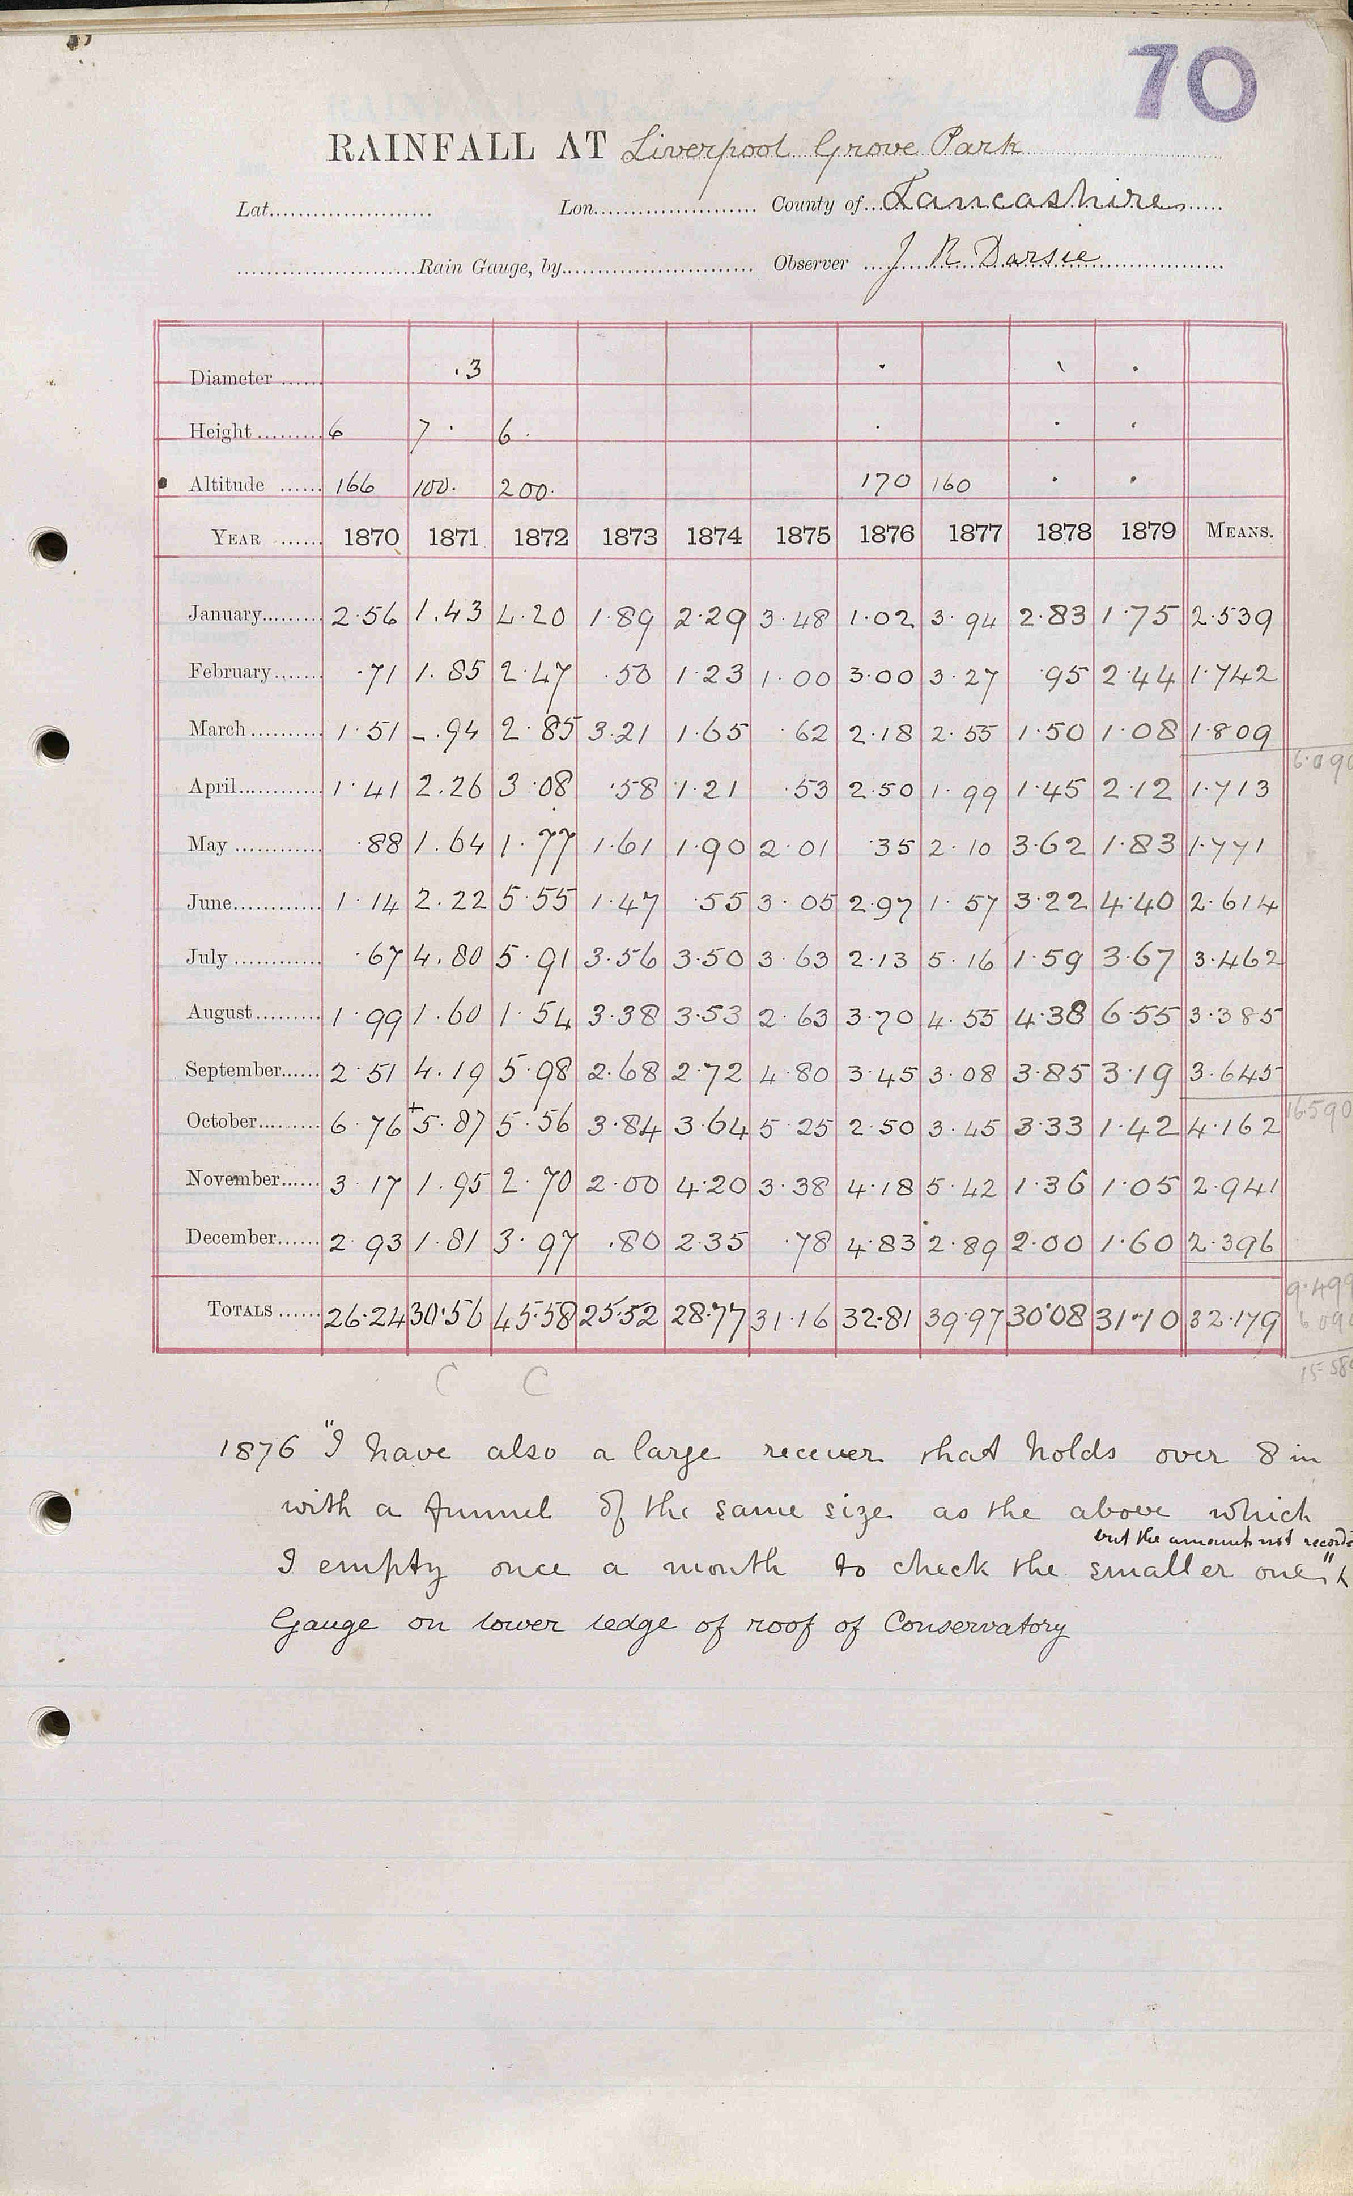 70
RAINFALL AT Liverpool Grove Park
Lat. Lon. County of Lancashire
Rain Gauge, by Observer J R Darsie
Diameter .3
Height 6 7. 6.
Altitude 166 100. 200. 170 160
YEAR 1870 1871 1872 1873 1874 1875 1876 1877 1878 1879 MEANS.
January 2.56 1.43 4.20 1.89 2.29 3.48 1.02 3.94 2.83 1.75 2.539
February .71 1.85 2.47 .50 1.23 1.00 3.00 3.27 .95 2.44 1.742
March 1.51 -.94 2.85 3.21 1.65 .62 2.18 2.55 1.50 1.08 1.809
April 1.41 2.26 3.08 .58 1.21 .53 2.50 1.99 1.45 2.12 1.713
May .88 1.64 1.77 1.61 1.90 2.01 .35 2.10 3.62 1.83 1.771
June 1.14 2.22 5.55 1.47 .55 3.05 2.97 1.57 3.22 4.40 2.614
July .67 4.80 5.91 3.56 3.50 3.63 2.13 5.16 1.59 3.67 3.462
August 1.99 1.60 1.54 3.38 3.53 2.63 3.70 4.55 4.38 6.55 3.385
September 2.51 4.19 5.98 2.68 2.72 4.80 3.45 3.08 3.85 3.19 3.645
October 6.76 +5.87 5.56 3.84 3.64 5.25 2.50 3.45 3.33 1.42 4.162
November 3.17 1.95 2.70 2.00 4.20 3.38 4.18 5.42 1.36 1.05 2.941
December 2.93 1.81 3.97 .80 2.35 .78 4.83 2.89 2.00 1.60 2.396
TOTALS 26.24 30.56 45.58 25.52 28.77 31.16 32.81 39.97 30.08 31.10 32.179
C C
1876 "I have also a large recever that holds over 8 in
with a funnel of the same size as the above which
but the amount not
I empty once a month to check the smaller one"
Gauge on lower ledge of roof of Conservatory